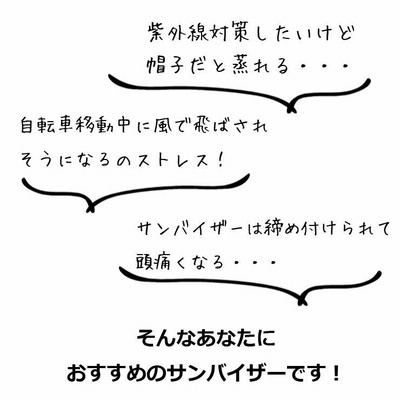 紫外線対策したいけど
帽子だと蒸れる・・・
自転車移動中に風で飛ばされ
そうになるのストレス！
サンバイザーは締め付けられて
頭痛くなる・・・
そんなあなたに
おすすめのサンバイザーです！